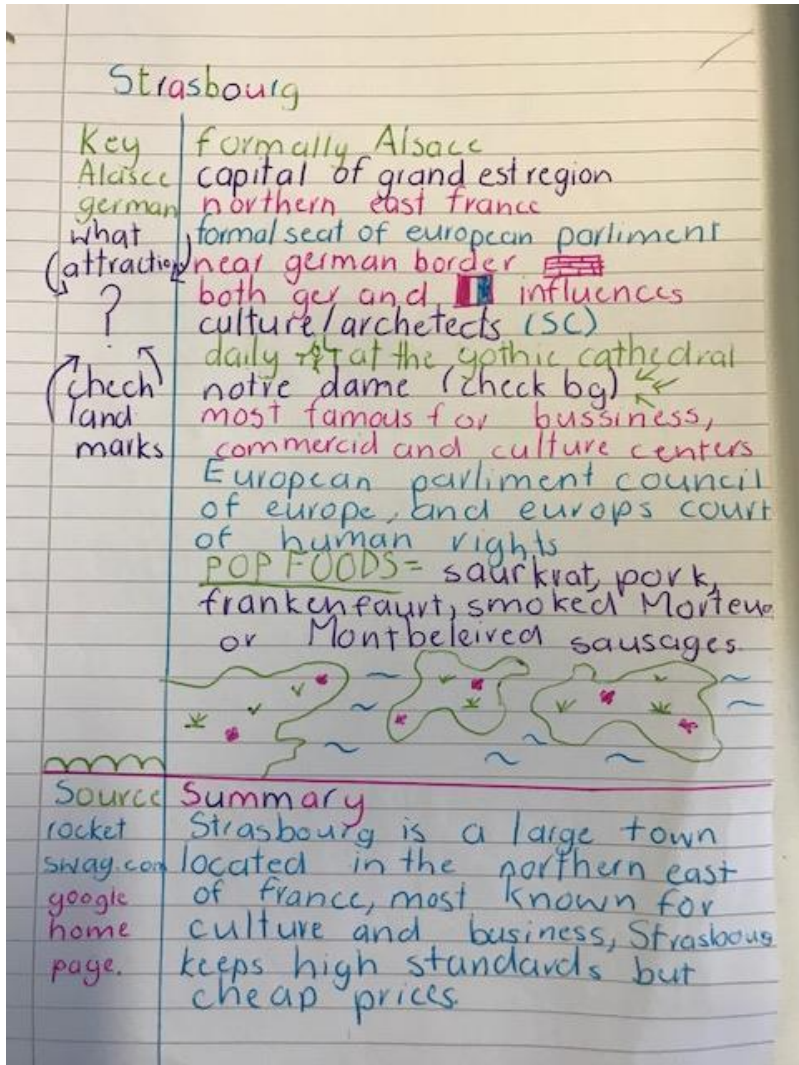 Strasbourg
Key
Alasce
german
what
(attraction)
?
(chech
land
marks
formally Alsace
capital of grand est region
northern east france
formal seat of european parliment
near german border
both ger and influences
culture/archetects (SC)
daily at the gothic cathedral
notre dame (check bg)
most famous for bussiness,
commercial and culture centers
European parliment council
of europe, and europs court
of human rights
POP FOODS= saurkrat, pork,
frankenfaurt, smoked Morteue
or Montbeleired sausages.
Source
rocket
swag.com
google
home
page.
Summary
Strasbourg is a large town
located in the northern east
of france, most known for
culture and business, Strasboug
keeps high standards but
cheap prices.